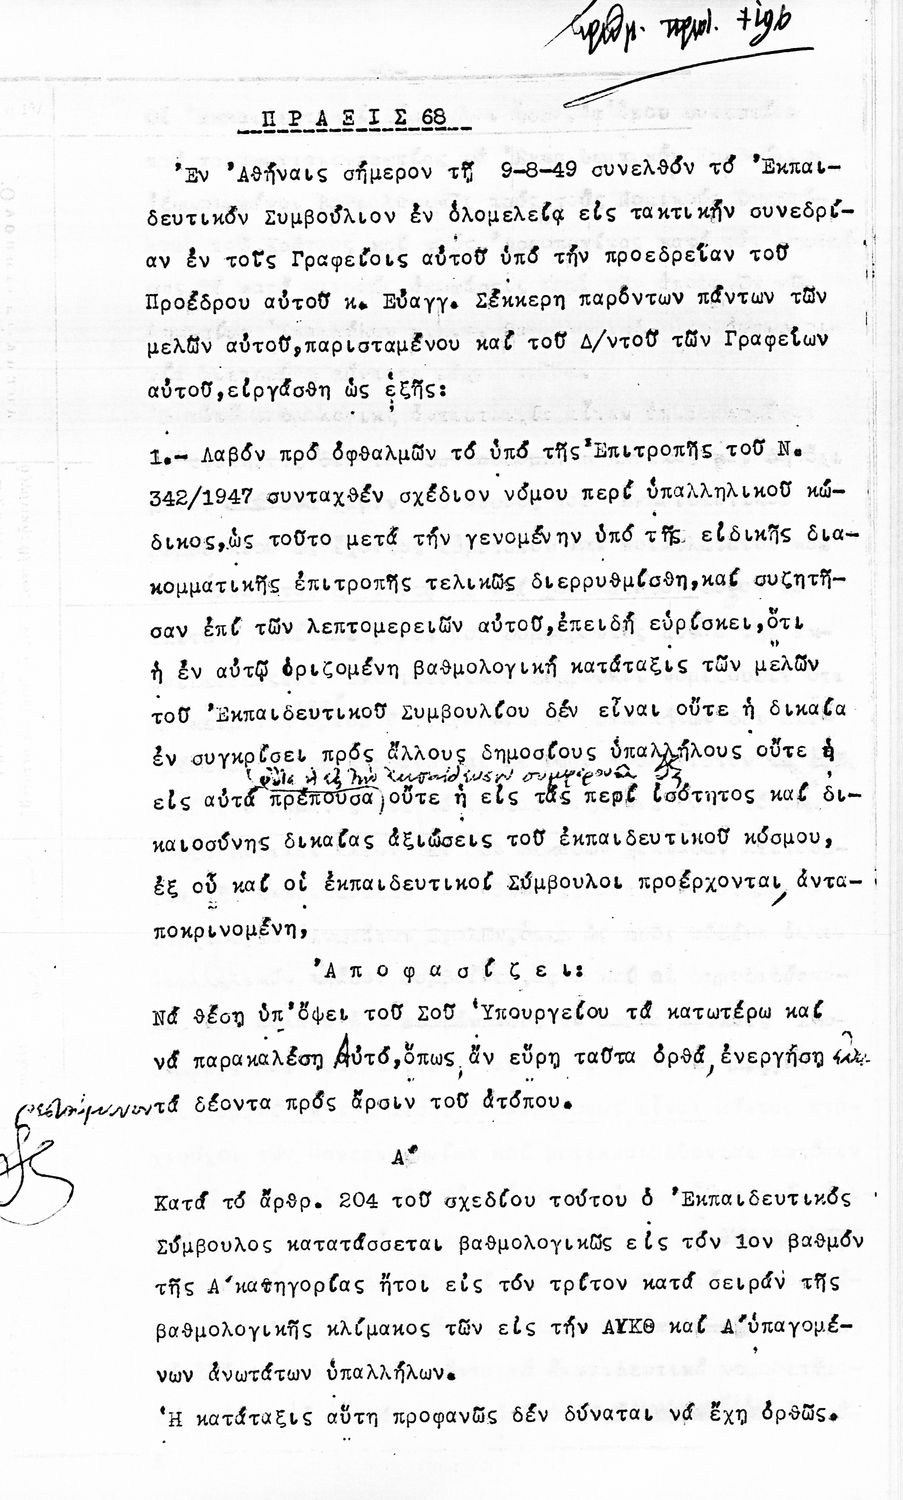 Π Ρ Α Ξ Ι Σ 68
Ἐν Ἀθήναις σήμερον τῇ 9-8-49 συνελθόν τό Ἐκπαι-
δευτικόν Συμβούλιον ἐν ὁλομελείᾳ εἰς τακτικήν συνεδρί-
αν ἐν τοῖς Γραφείοις αὐτοῦ ὑπό τήν προεδρείαν τοῦ
Προέδρου αὐτοῦ κ. Εὐαγγ. Σέκκερη παρόντων πάντων τῶν
μελῶν αὐτοῦ,παρισταμένου καί τοῦ Δ/ντοῦ τῶν Γραφείων
αὐτοῦ,εἰργάσθη ὡς ἑξῆς:
1.- Λαβόν πρό ὀφθαλμῶν τό ὑπό τῆς Ἐπιτροπῆς τοῦ Ν.
342/1947 συνταχθέν σχέδιον νόμου περί ὑπαλληλικοῦ κώ-
δικος,ὡς τοῦτο μετά τήν γενομένην ὑπό τῆς εἰδικῆς δια-
κομματικῆς ἐπιτροπῆς τελικῶς διερρυθμίσθη,καί συζητῆ-
σαν ἐπί τῶν λεπτομερειῶν αὐτοῦ,ἐπειδή εὑρίσκει,ὅτι
ἡ ἐν αὐτῷ ὁριζομένη βαθμολογική κατάταξις τῶν μελῶν
τοῦ Ἐκπαιδευτικοῦ Συμβουλίου δέν εἶναι οὔτε ἡ δικαία
ἐν συγκρίσει πρός ἄλλους δημοσίους ὑπαλλήλους οὔτε ἡ
εἰς αὐτά πρέπουσα οὔτε ἡ εἰς τάς περί ἰσότητος καί δι-
καιοσύνης δικαίας ἀξιώσεις τοῦ ἐκπαιδευτικοῦ κόσμου,
ἐξ οὗ καί οἱ ἐκπαιδευτικοί Σύμβουλοι προέρχονται, ἀντα-
ποκρινομένη,
Ἀ π ο φ α σ ί ζ ε ι :
Νά θέσῃ ὑπ'ὄψει τοῦ Σοῦ Ὑπουργείου τά κατωτέρω καί
νά παρακαλέσῃ Αὐτό,ὅπως, ἄν εὕρῃ ταῦτα ὀρθά, ἐνεργήσῃ
τά δέοντα πρός ἄρσιν τοῦ ἀτόπου.
Α'
Κατά τό ἄρθρ. 204 τοῦ σχεδίου τούτου ὁ Ἐκπαιδευτικός
Σύμβουλος κατατάσσεται βαθμολογικῶς εἰς τόν 1ον βαθμόν
τῆς Α'κατηγορίας ἤτοι εἰς τόν τρίτον κατά σειράν τῆς
βαθμολογικῆς κλίμακος τῶν εἰς τήν ΑΥΚΘ καί Α'ὑπαγομέ-
νων ἀνωτάτων ὑπαλλήλων.
Ἡ κατάταξις αὕτη προφανῶς δέν δύναται νά ἔχῃ ὀρθῶς.